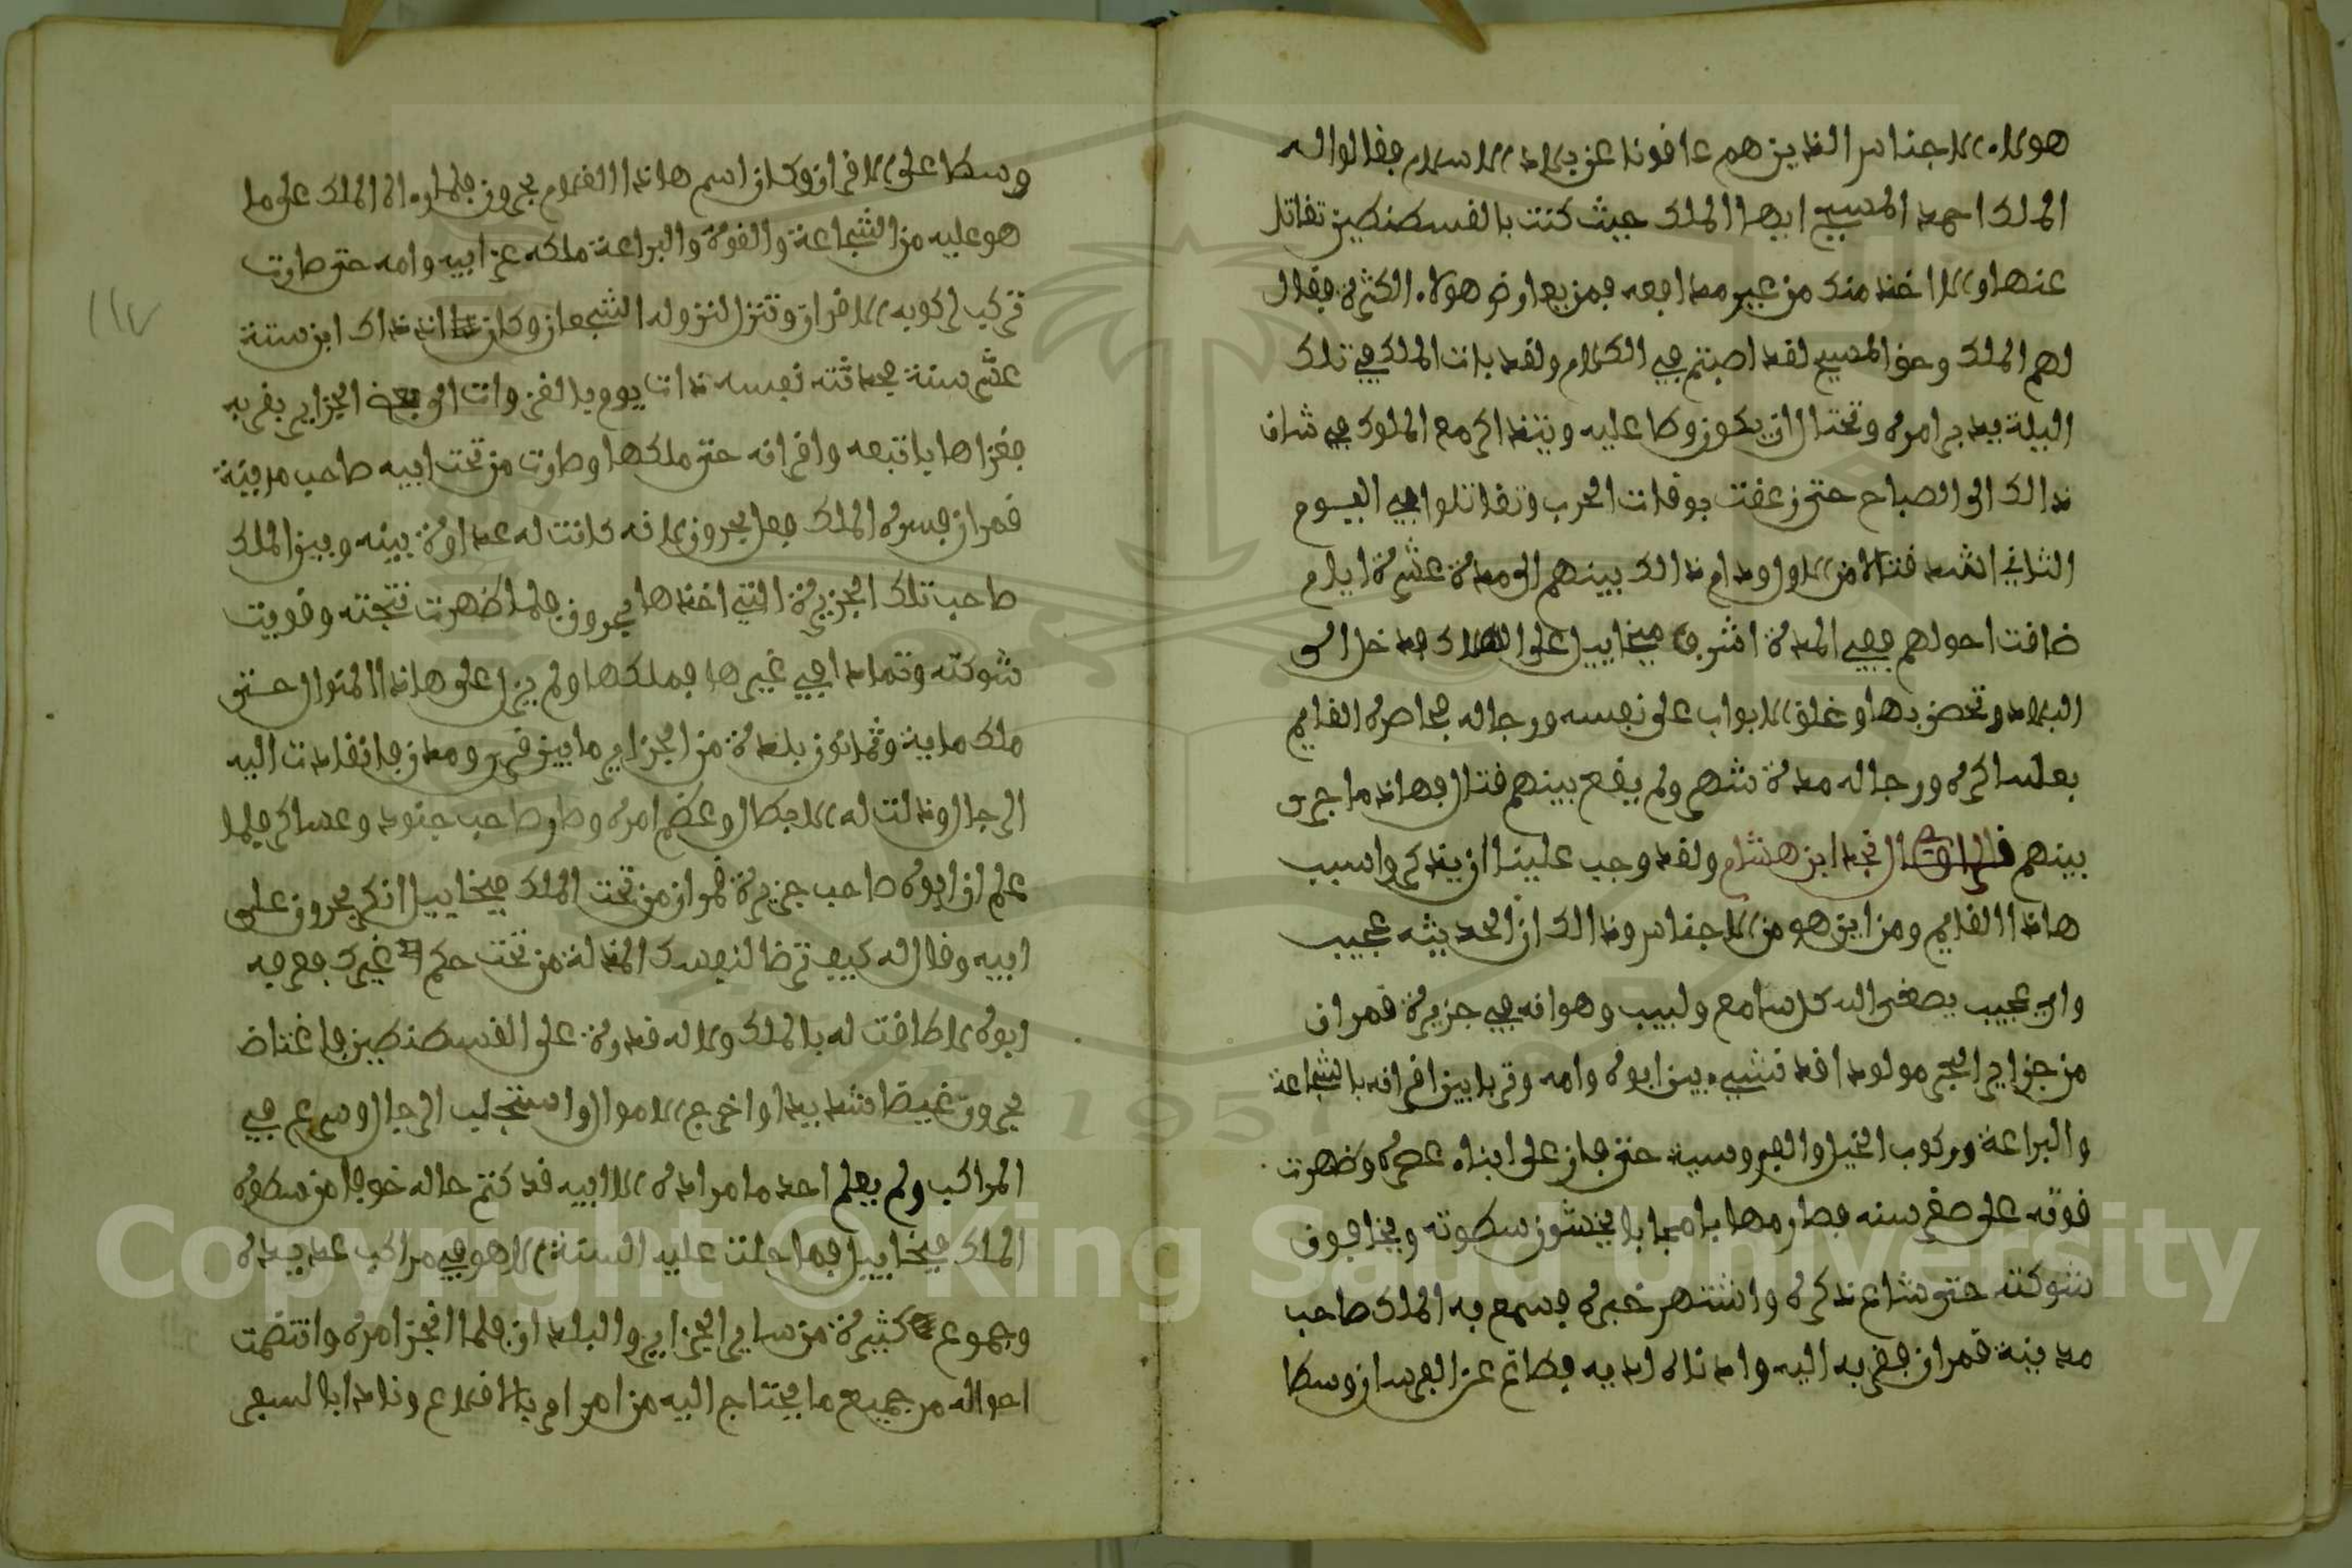 هولاء الاجناس الذين هم عاقونا عن بلاد الاسلام فقالوا له
الملك احمد المسيح ايها الملك حيث كنت بالقسطنطين تقاتل
عنها والا اخذ منك من غير مدافعه فمن يعارض هولاء الكثرة فقال
لهم الملك وحق المسيح لقد اصبتم في الكلام ولقد بات الملك في تلك
اليلة يدبر امره وتحتال ان يكون وكا عليه ويتذاكر مع الملوك في شان
ذالك الى الصباح حتى زعقت بوقات الحرب وتقاتلوا في اليوم
الثاني اشد قتالا من الاول ودام ذالك بينهم الى مدة عشرة ايام
ضاقت احولهم ففي المدة اشرف ميخاييل على الهلاك فدخل الى
البلاد وتحصن بها وغلق الابواب على نفسه ورجاله فحاصره القايم
بعساكره ورجاله مدة شهر ولم يقع بينهم قتال فهاذا ما جرى
بينهم قال نجد ابن هشام ولقد وجب علينا ان يذكروا سبب
هاذا القايم ومن اين هو من الاجناس وذالك ان الحديثه عجيب
واي عجيب يصغى اليه كل سامع ولبيب وهو انه في جزيرة قمران
من جزاير البحر مولودا قد نشيء بين ابوه وامه وتربا بين اقرانه بالشجاعة
والبراعة وركوب الخيل والفروسية حتى فاز على ابناء عصره وظهرت
قوته على صغر سنه فصار مهابا مجابا يخشون سطوته ويخافون
شوكته حتى شاع ذكره واشتهر خبره فسمع به الملك صاحب
مدينة قمران فقربه اليه وادناه لديه فطاع عن الفرسان وسطا
وسطا على الاقران وكان اسم هاذا الغلام بحرون فلما راه الملك على ما
هو عليه من الشجاعة والقوة والبراعة ملكه عن ابيه وامه حتى صارت
تركب لركوبه الاقران وتنزل لنزوله الشجعان وكان اذ ذاك ابن ستة
عشر سنة فحدثته نفسه ذات يوم بالغز وات الى بعض الجزاير بقربه
فغزاها باتبعه واقرانه حتى ملكها وصارت من تحت ابيه صاحب مدينة
قمران فسره الملك فعل بحرون لانه كانت له عداوة بينه وبين الملك
صاحب تلك الجزيرة التي اخذها بحرون فلما ظهرت نتجته وقويت
شوكته وتمادا في غيرها فملكها ولم يزل على هاذا المنوال حتى
ملك ماية وثمانون بلدة من الجزاير ما بين قرى ومدن فانقادت اليه
الرجال وذلت له الابطال وعظم امره وصار صاحب جنود وعساكر فلما
علم ان ابوه صاحب جزيرة قمران من تحت الملك ميخاييل انكر بحرون على
ابيه وقال له كيف ترضا لنفسك المذلة من تحت حكم غيرك فعرفه
ابوه لا طاقت له بالملك ولا له قدرة على القسطنطين فاغتاض
بحرون غيضا شديدا واخرج الاموال واستجلب الرجال وسرع في
المراكب ولم يعلم احد ما مراده الا ابيه قد كتم حاله خوفا من سطوه
الملك ميخاييل فما حلت عليه السنة الا هو في مراكب عديدة
وجموع كثيرة من ساير الجزاير والبلدان فلما انجز امره وانتضمت
احواله من جميع ما يحتاج اليه من امر امر بالاقلاع ونادا بالسفر
١١٧
Copyright © King Saud University
1957